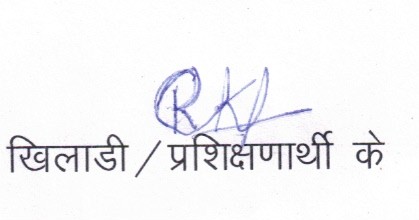 खिलाडी / प्रशिक्षणार्थी के